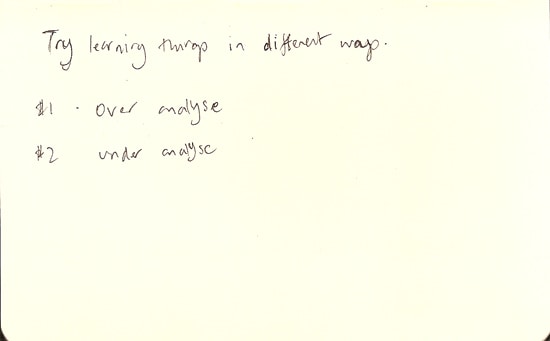 Try learning things in different ways.
#1 - over analyse
#2 under analyse